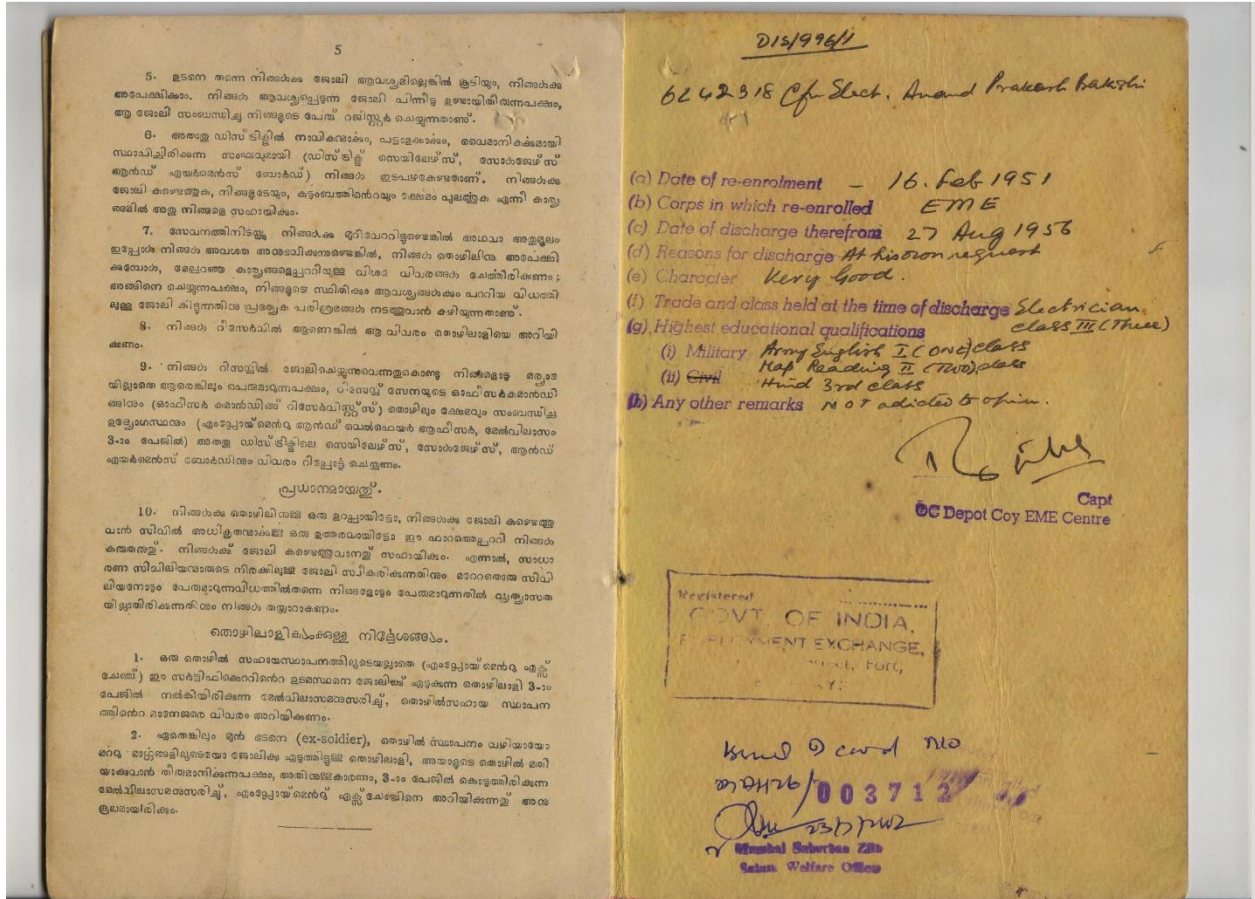 5
5. ഉടനെ തന്നെ നിങ്ങൾക്കു ജോലി ആവശ്യമില്ലെങ്കിൽ കൂടിയും, നിങ്ങൾക്കു
അപേക്ഷിക്കാം. നിങ്ങൾ ആവശ്യപ്പെടുന്ന ജോലി പിന്നീടു ഉണ്ടായിതീരുന്നപക്ഷം,
ആ ജോലി സംബന്ധിച്ചു നിങ്ങളുടെ പേരു് റജിസ്റ്റർ ചെയ്യുന്നതാണു്.
6. അതാതു ഡിസ്ട്രിക്ടിൽ നാവികന്മാർക്കും, പട്ടാളക്കാർക്കും, വൈമാനികർക്കുമായി
സ്ഥാപിച്ചിരിക്കുന്ന സംഘവുമായി (ഡിസ്ട്രിക്ട് സെയിലേഴ്സ്, സോൾജേഴ്സ്
ആൻഡ് എയർമെൻസ് ബോർഡ്) നിങ്ങൾ ഇടപഴകേണ്ടതാണു്. നിങ്ങൾക്കു
ജോലി കണ്ടെത്തുക, നിങ്ങളുടേയും, കുടുംബത്തിൻെറയും ക്ഷേമം പുലൎത്തുക എന്നീ കാൎയ്യ
ങ്ങളിൽ അതു നിങ്ങളെ സഹായിക്കും.
7. സേവനത്തിനിടയ്ക്കു നിങ്ങൾക്കു മുറിവേററിട്ടുണ്ടെങ്കിൽ അഥവാ അതുമൂലം
ഇപ്പോൾ നിങ്ങൾ അവശത അനുഭവിക്കുന്നുണ്ടെങ്കിൽ, നിങ്ങൾ തൊഴിലിന്നു അപേക്ഷി
ക്കുമ്പോൾ, മേല്പറഞ്ഞ കാൎയ്യങ്ങളെപ്പററിയുള്ള വിശദ വിവരങ്ങൾ ചേൎത്തിരിക്കണം;
അങ്ങിനെ ചെയ്യുന്നപക്ഷം, നിങ്ങളുടെ സ്ഥിതിക്കും ആവശ്യങ്ങൾക്കും പററിയ വിധത്തി
ലുള്ള ജോലി കിട്ടുന്നതിന്നു പ്രത്യേക പരിശ്രമങ്ങൾ നടത്തുവാൻ കഴിയുന്നതാണു്.
8. നിങ്ങൾ റീസേർവിൽ ആണെങ്കിൽ ആ വിവരം തൊഴിലാളിയെ അറിയി
ക്കണം.
9. നിങ്ങൾ റിസൎവ്വിൽ ജോലിചെയ്യുന്നുവെന്നതുകൊണ്ടു നിങ്ങളോടു മൎയ്യാദ
യില്ലാതെ ആരെങ്കിലും പെരുമാറുന്നപക്ഷം, റിസേവ്വ് സേനയുടെ ഓഫീസർകമാൻഡി
ങ്ങിനും (ഓഫിസർ കമാൻഡിങ്ങ് റിസേർവിസ്റ്റ്സ്) തൊഴിലും ക്ഷേമവും സംബന്ധിച്ച
ഉദ്യോഗസ്ഥനും (എംപ്ലോയ്മെൻറു ആൻഡ് വെൽഫെയർ ആഫീസർ, മേൽവിലാസം
3-ാം പേജിൽ) അതതു ഡിസ്ട്രിക്ടിലെ സെയിലേഴ്സ്, സോൾജേഴ്സ്, ആൻഡ്
എയർമെൻസ് ബോർഡിന്നും വിവരം റിപ്പോർട്ടു ചെയ്യണം.
പ്രധാനമായതു്.
10. നിങ്ങൾക്കു തൊഴിലിന്നുള്ള ഒരു ഉറപ്പായിട്ടോ, നിങ്ങൾക്കു ജോലി കണ്ടെത്തു
വാൻ സിവിൽ അധികൃതന്മാർക്കുള്ള ഒരു ഉത്തരവായിട്ടോ ഈ ഫാറത്തെപ്പററി നിങ്ങൾ
കരുതരുതു്. നിങ്ങൾക്കു് ജോലി കണ്ടെത്തുവാനതു് സഹായിക്കും. എന്നാൽ, സാധാ
രണ സിവിലിയന്മാരുടെ നിരക്കിലുള്ള ജോലി സ്വീകരിക്കുന്നതിന്നും മറേറതൊരു സിവി
ലിയനോടും പേരുമാറുന്നവിധത്തിൽതന്നെ നിങ്ങളോടും പേരുമാറുന്നതിൽ വ്യത്യാസത
യില്ലാതിരിക്കുന്നതിന്നും നിങ്ങൾ തയ്യാറാകണം.
തൊഴിലാളികൾക്കുള്ള നിൎദ്ദേശങ്ങൾ.
1. ഒരു തൊഴിൽ സഹായസ്ഥാപനത്തിലൂടെയല്ലാതെ (എംപ്ലോയ്മെൻറു എക്സ്
ചേഞ്ച്) ഈ സർട്ടിഫിക്കെററിൻെറ ഉടമസ്ഥനെ ജോലിയ്ക്കു് എടുക്കുന്ന തൊഴിലാളി 3-ാം
പേജിൽ നൽകിയിരിക്കുന്ന മേൽവിലാസമനുസരിച്ച്, തൊഴിൽസഹായ സ്ഥാപന
ത്തിൻെറ മാനേജരെ വിവരം അറിയിക്കണം.
2. ഏതെങ്കിലും മുൻ ഭടനെ (ex-soldier), തൊഴിൽ സ്ഥാപനം വഴിയായോ
മററു മാൎഗ്ഗങ്ങളിലൂടെയോ ജോലിക്കു എടുത്തിട്ടുള്ള തൊഴിലാളി, അയാളുടെ തൊഴിൽ മതി
യാക്കുവാൻ തീരുമാനിക്കുന്നപക്ഷം, അതിന്നുള്ളകാരണം, 3-ാം പേജിൽ കൊടുത്തിരിക്കുന്ന
മേൽവിലാസമനുസരിച്ച്, എംപ്ലോയ്മെൻറു് എക്സ്ചേഞ്ചിനെ അറിയിക്കുന്നതു് അനു
കൂലമായിരിക്കും.
DIS/996/1
6242318 Cfn Elect. Anand Prakash Bakshi
(a) Date of re-enrolment – 16. Feb 1951
(b) Corps in which re-enrolled EME
(c) Date of discharge therefrom 27 Aug 1956
(d) Reasons for discharge At his own request
(e) Character Very Good.
(f) Trade and class held at the time of discharge Electrician
class III (Three)
(g) Highest educational qualifications
(i) Military Army English I (ONE) class
Map Reading II (TWO) class
(ii) Civil Hind 3rd class
(h) Any other remarks NOT adicted to opium.
Capt
OC Depot Coy EME Centre
Registered
GOVT. OF INDIA,
EMPLOYMENT EXCHANGE,
Fort,
003712
Mumbai Suburban Zilla
Sainik Welfare Office